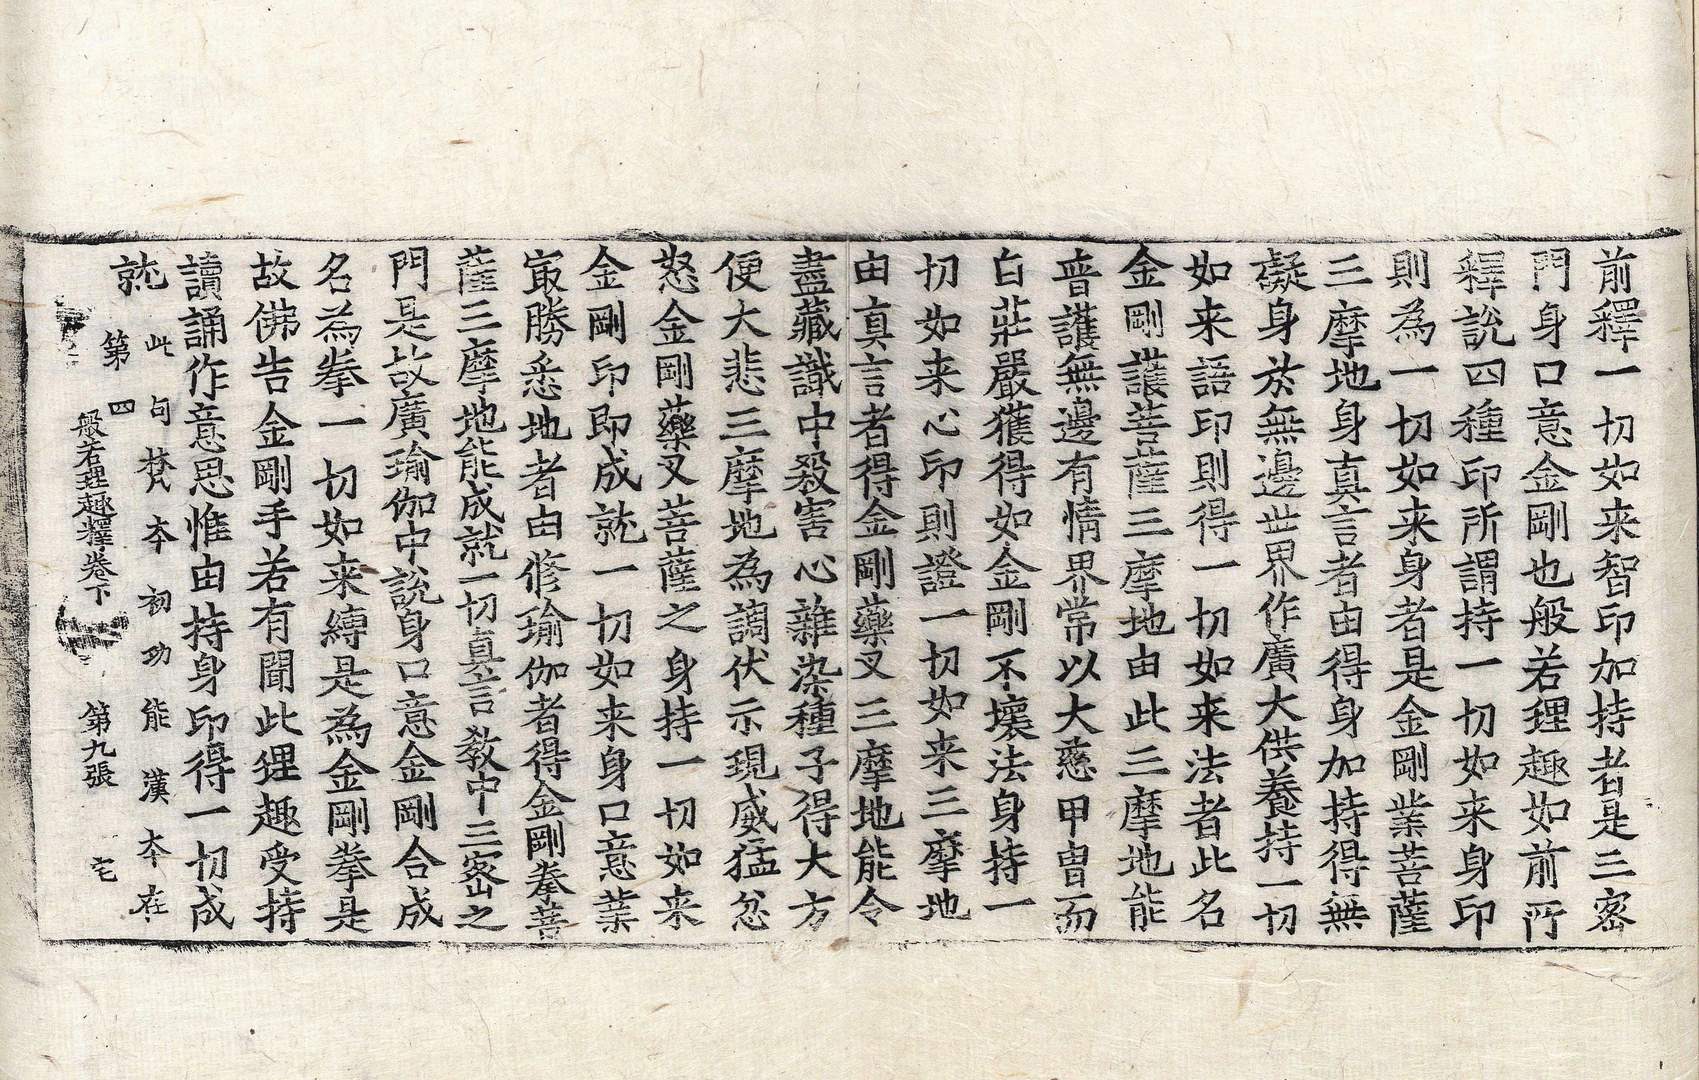 前釋一切如来智印加持者是三密
門身口意金剛也般若理趣如前所
釋說四種印所謂持一切如来身印
則為一切如来身者是金剛業菩薩
三摩地身真言者由得身加持得無
礙身於無邊世界作廣大供養持一切
如来語印則得一切如来法者此名
金剛護菩薩三摩地由此三摩地能
普護無邊有情界常以大慈甲冑而
自莊嚴獲得如金剛不壞法身持一
切如来心印則證一切如来三摩地
由真言者得金剛藥叉三摩地能令
盡藏識中殺害心雜染種子得大方
便大悲三摩地為調伏示現威猛忿
怒金剛藥叉菩薩之身持一切如来
金剛印即成就一切如来身口意業
冣勝悉地者由修瑜伽者得金剛拳菩
薩三摩地能成就一切真言教中三密之
門是故廣瑜伽中說身口意金剛合成
名為拳一切如来縛是為金剛拳是
故佛告金剛手若有聞此理趣受持
讀誦作意思惟由持身印得一切成
就
此句梵夲初功能漢夲在
第四
般若理趣釋卷下 第九張 宅